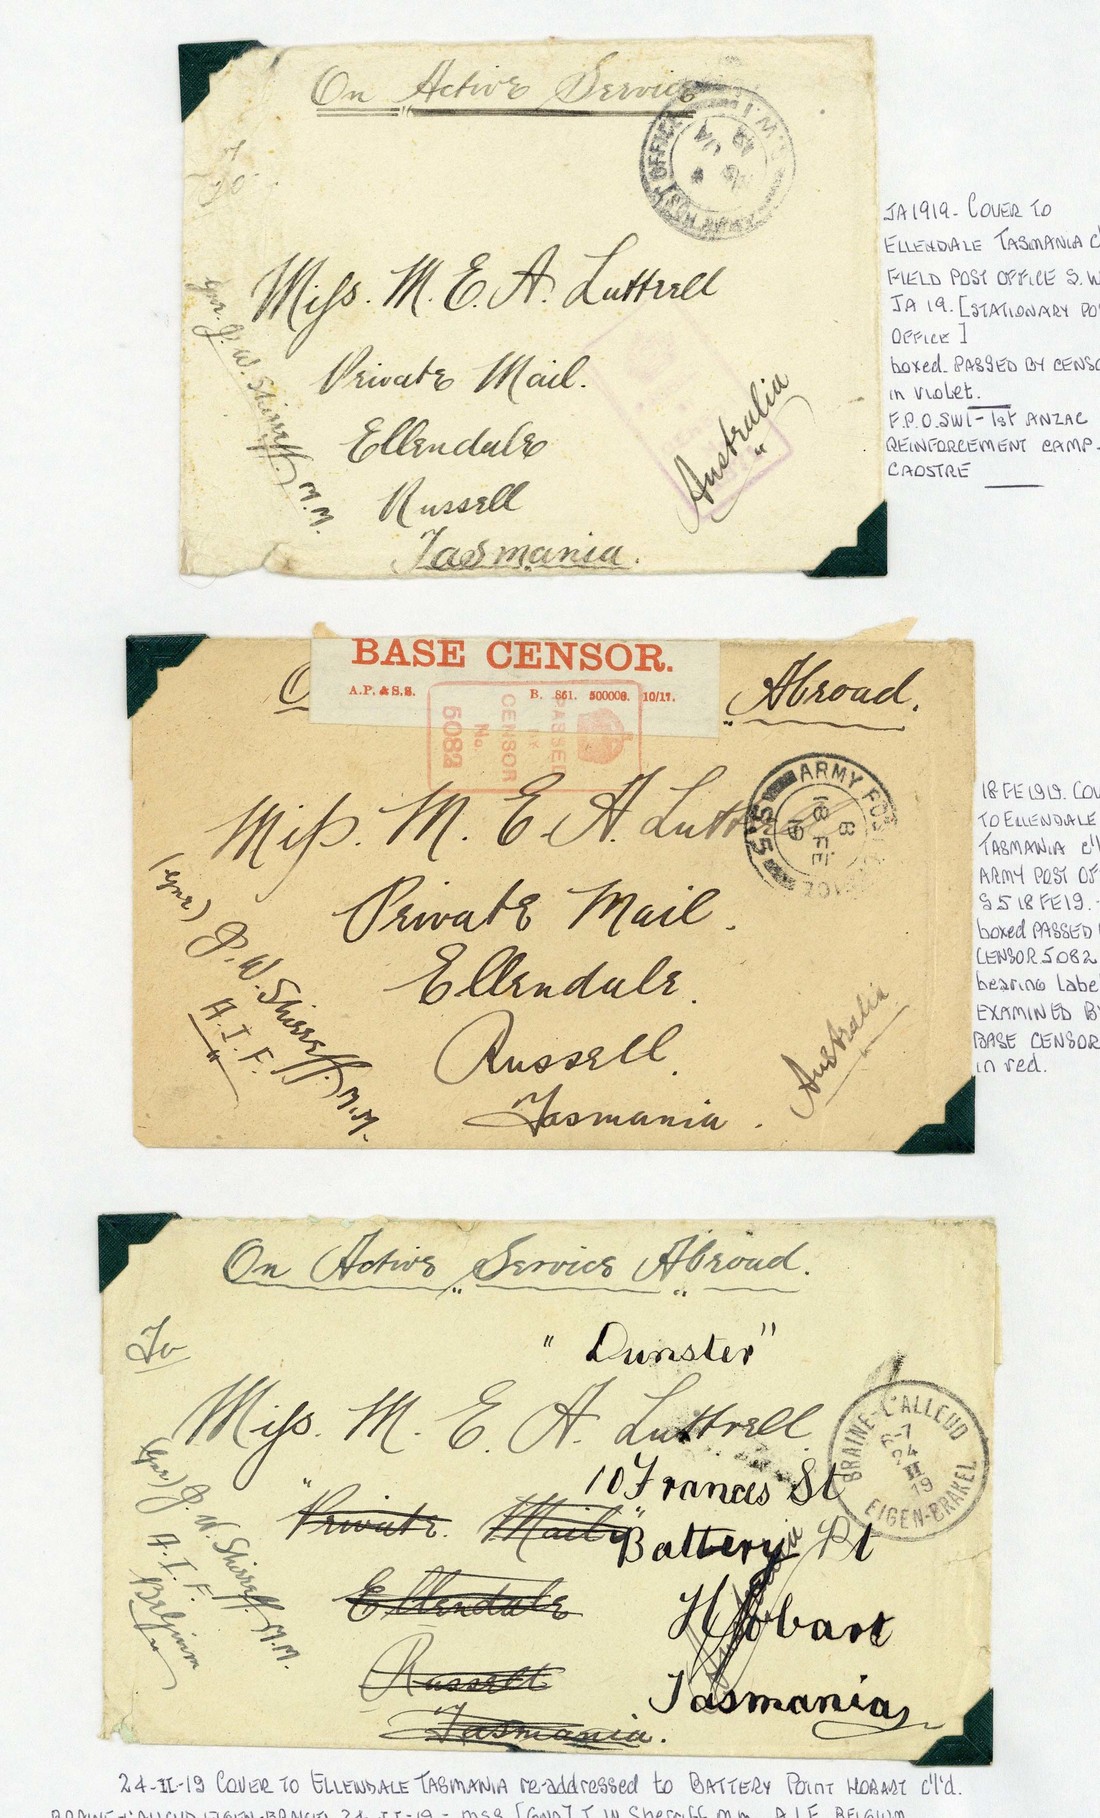 On Active Service
To
FIELD POST OFFICE
S.W.1
JA
19
Miss. M. E. A. Luttrell
Private Mail.
Ellendale
Russell
Tasmania.
Australia
Gnr. J. W. Shirreff. M.M.
JA1919- COVER TO
ELLENDALE TASMANIA c'
FIELD POST OFFICE S.W
JA 19. [STATIONARY PO
OFFICE ]
boxed. PASSED BY CENSO
in violet.
F.P.O.SW1- 1st ANZAC
REINFORCEMENT CAMP-
CAOSTRE
BASE CENSOR.
A.P. & S.S. B. 861. 500000. 10/17.
PASSED
BY
CENSOR
No.
5082
Abroad.
ARMY POST OFFICE
S.5
B
18 FE
19
Miss. M. E A. Lutt
Private Mail.
Ellendale.
Russell.
Tasmania.
Australia
(Gnr) J. W. Shirreff. M.M.
A. I. F.
18 FE1919. COV
TO ELLENDALE
TASMANIA c'l
ARMY POST OF
S.5 18 FE19.-
boxed PASSED
CENSOR 5082
bearing label
EXAMINED B
BASE CENSOR
in red.
On Active Service Abroad.
To
"Dunster"
Miss. M. E. A. Luttrell
BRAINE-L'ALLEUD
24
II
19
EIGEN-BRAKEL
10 Frances St
"Private Mail"
Battery Pt
Ellendale
Hobart
Russell
Tasmania
Tasmania.
(Gnr) J. W. Shirreff. M.M.
A. I. F.
Belgium
24-II-19 COVER TO ELLENDALE TASMANIA re-addressed to BATTERY POINT HOBART c'l'd.